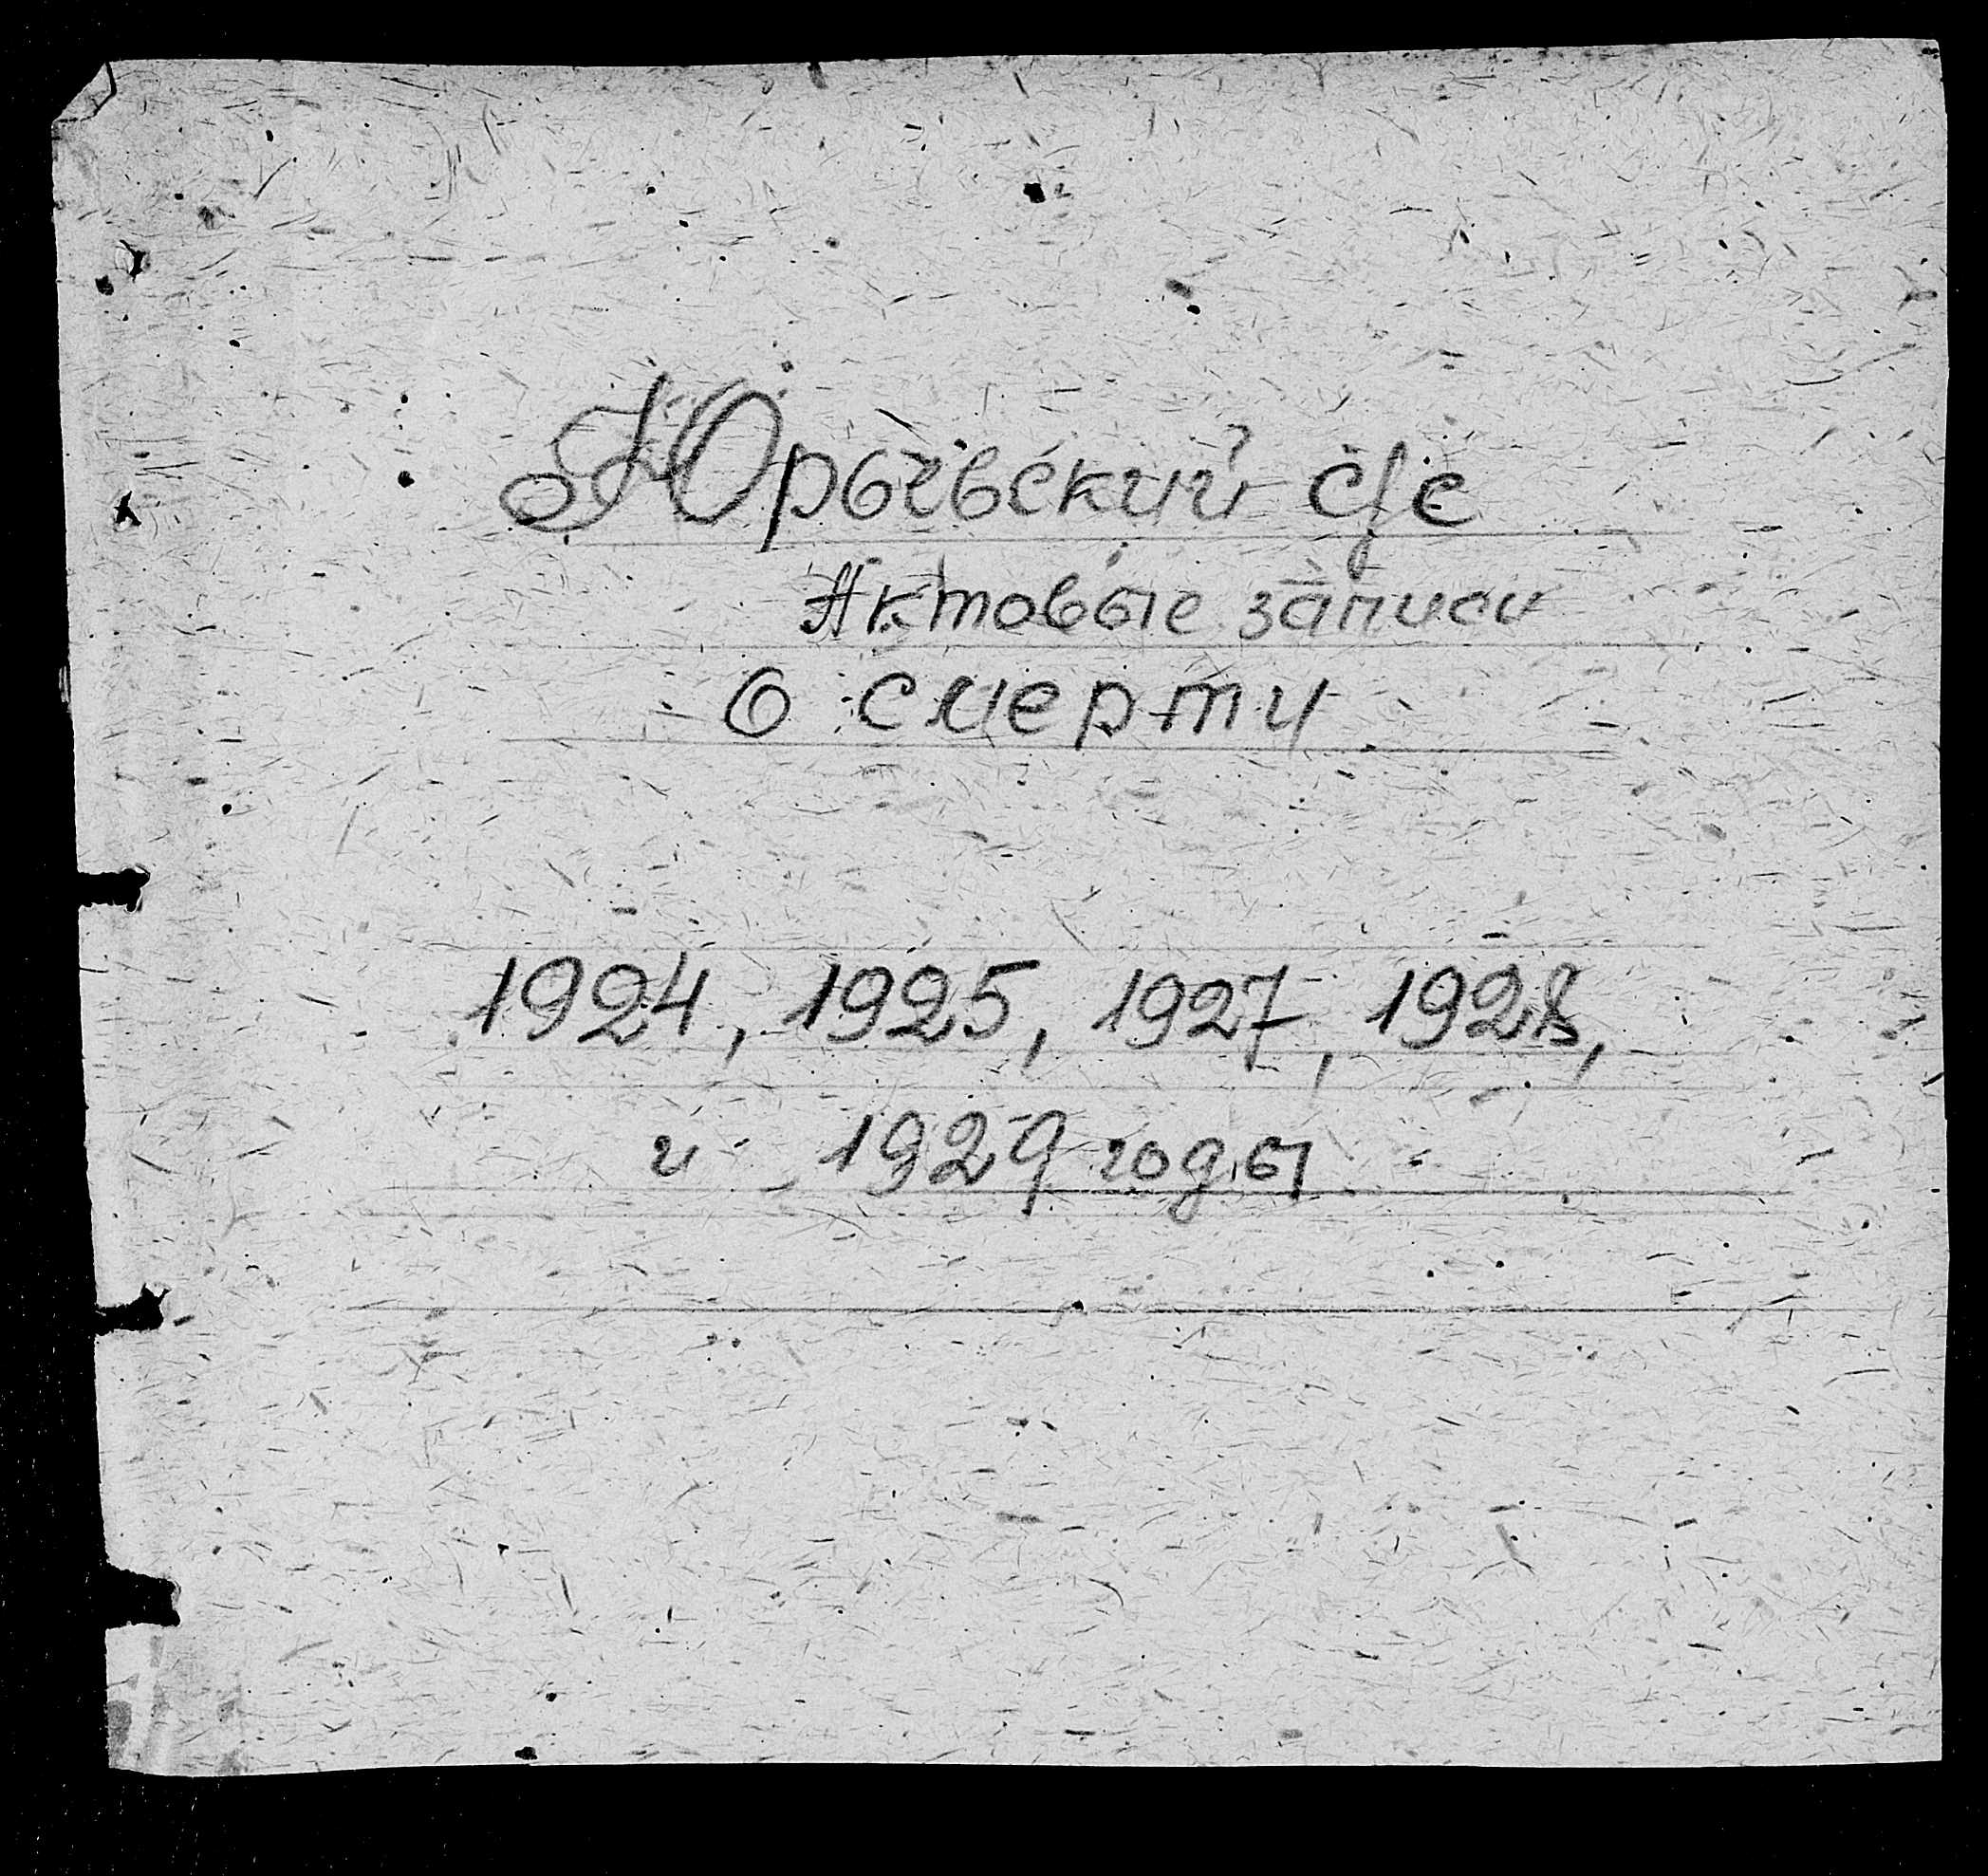 Юрьевский с/с
Актовые записи
о смерти
1924, 1925, 1927, 1928,
и 1929 годы